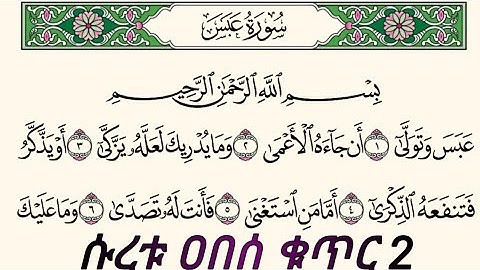 سُورَةُ عَبَسَ
بِسْمِ ٱللَّهِ ٱلرَّحْمَٰنِ ٱلرَّحِيمِ
عَبَسَ وَتَوَلَّىٰٓ ١ أَن جَآءَهُ ٱلْأَعْمَىٰ ٢ وَمَا يُدْرِيكَ لَعَلَّهُۥ يَزَّكَّىٰٓ ٣ أَوْ يَذَّكَّرُ
فَتَنفَعَهُ ٱلذِّكْرَىٰٓ ٤ أَمَّا مَنِ ٱسْتَغْنَىٰ ٥ فَأَنتَ لَهُۥ تَصَدَّىٰ ٦ وَمَا عَلَيْكَ
ሱረቱ ዐበሰ ቁጥር 2